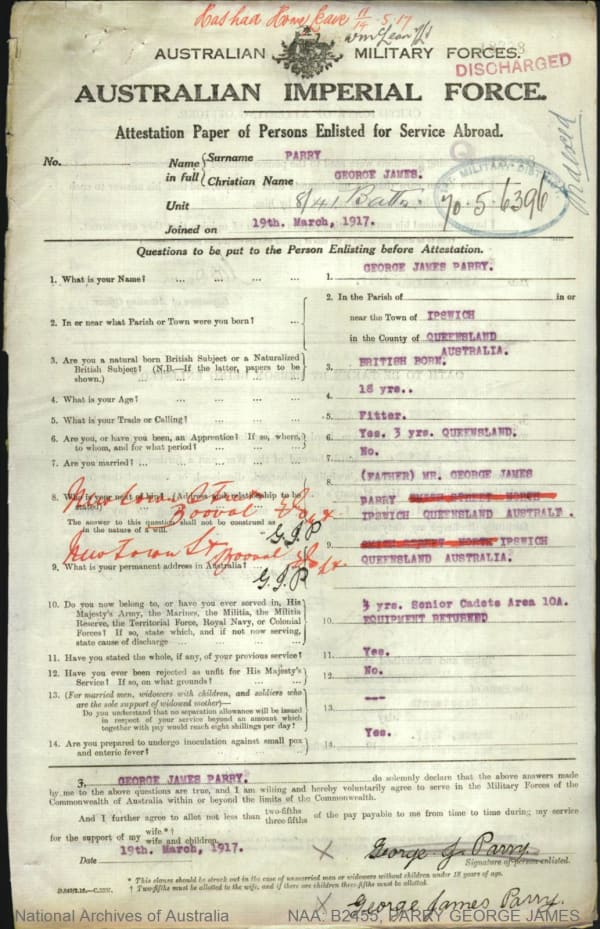 Has had Home Leave 11/14 5.17
AUSTRALIAN MILITARY FORCES.
DISCHARGED
AUSTRALIAN IMPERIAL FORCE.
Attestation Paper of Persons Enlisted for Service Abroad.
Indexed
No. Name in full Surname PARRY
Christian Name GEORGE JAMES.
Unit 8/41 Battn.
MILITARY DISTRICT
70.5.6396
Joined on 19th. March, 1917.
Questions to be put to the Person Enlisting before Attestation.
1. What is your Name? ... ... ... ... 1. GEORGE JAMES PARRY.
2. In or near what Parish or Town were you born? ... 2. In the Parish of in or
near the Town of IPSWICH
in the County of QUEENSLAND
AUSTRALIA.
3. Are you a natural born British Subject or a Naturalized
British Subject? (N.B.—If the latter, papers to be
shown.) ... ... ... ... 3. BRITISH BORN.
4. What is your Age? ... ... ... ... 4. 18 yrs..
5. What is your Trade or Calling? ... ... ... 5. Fitter.
6. Are you, or have you been, an Apprentice? If so, where,
to whom, and for what period? ... ... ... 6. Yes. 3 yrs. QUEENSLAND.
7. Are you married? ... ... ... ... 7. No.
8. What is your next of kin? (Address and relationship to be
stated) 8. (FATHER) MR. GEORGE JAMES
PARRY
IPSWICH QUEENSLAND AUSTRALE.
Newtown St
Booval
The answer to this question shall not be construed as
in the nature of a will.
G.J.P
Newtown St Booval
9. What is your permanent address in Australia? 9. IPSWICH
QUEENSLAND AUSTRALIA.
G.J.P
10. Do you now belong to, or have you ever served in, His
Majesty's Army, the Marines, the Militia, the Militia
Reserve, the Territorial Force, Royal Navy, or Colonial
Forces? If so, state which, and if not now serving,
state cause of discharge ... ... ... 10. 3 yrs. Senior Cadets Area 10A.
EQUIPMENT RETURNED
11. Have you stated the whole, if any, of your previous service? 11. Yes.
12. Have you ever been rejected as unfit for His Majesty's
Service? If so, on what grounds? ... ... 12. No.
13. (For married men, widowers with children, and soldiers who
are the sole support of widowed mother)—
Do you understand that no separation allowance will be issued
in respect of your service beyond an amount which
together with pay would reach eight shillings per day? 13. ---
14. Are you prepared to undergo inoculation against small pox
and enteric fever? ... ... ... 14. Yes.
I, GEORGE JAMES PARRY. do solemnly declare that the above answers made
by me to the above questions are true, and I am willing and hereby voluntarily agree to serve in the Military Forces of the
Commonwealth of Australia within or beyond the limits of the Commonwealth.
And I further agree to allot not less than two-fifths three-fifths of the pay payable to me from time to time during my service
for the support of my wife.*† wife and children.
Date 19th. March, 1917. X George J Parry.
Signature of person enlisted.
* This clause should be struck out in the case of unmarried men or widowers without children under 18 years of age.
† Two-fifths must be allotted to the wife, and if there are children three-fifths must be allotted.
X George James Parry.
National Archives of Australia NAA: B2455, PARRY GEORGE JAMES